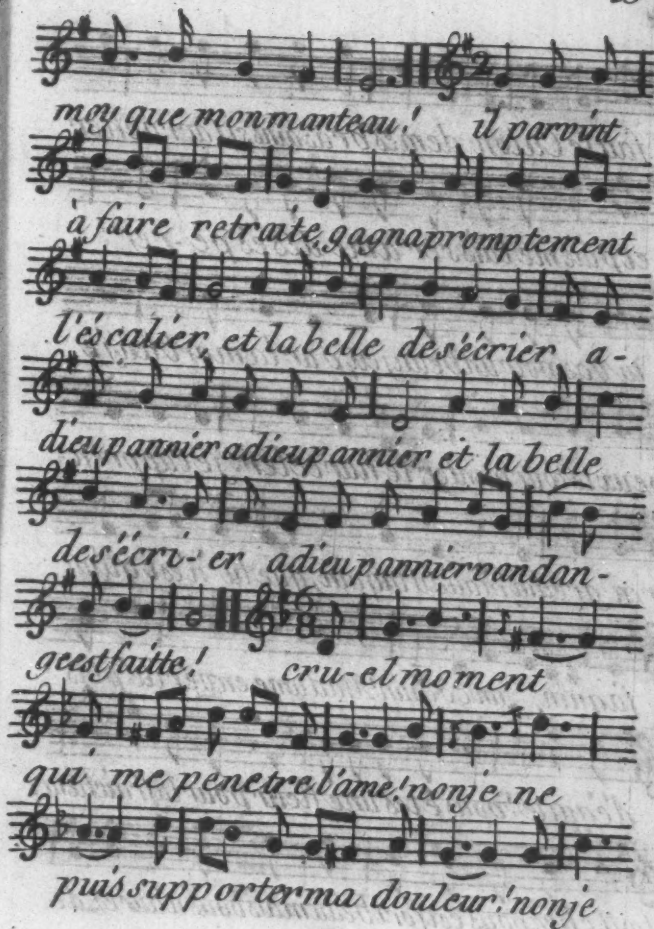 moy que mon manteau! il parvint
à faire retraite, gagna promptement
l'éscalier, et la belle des'écrier a-
dieu pannier adieu pannier et la belle
des'écri-er adieu pannier vandan-
ge est faitte! cru-el moment
qui me penetre l'ame! non je ne
puis supporter ma douleur! non je